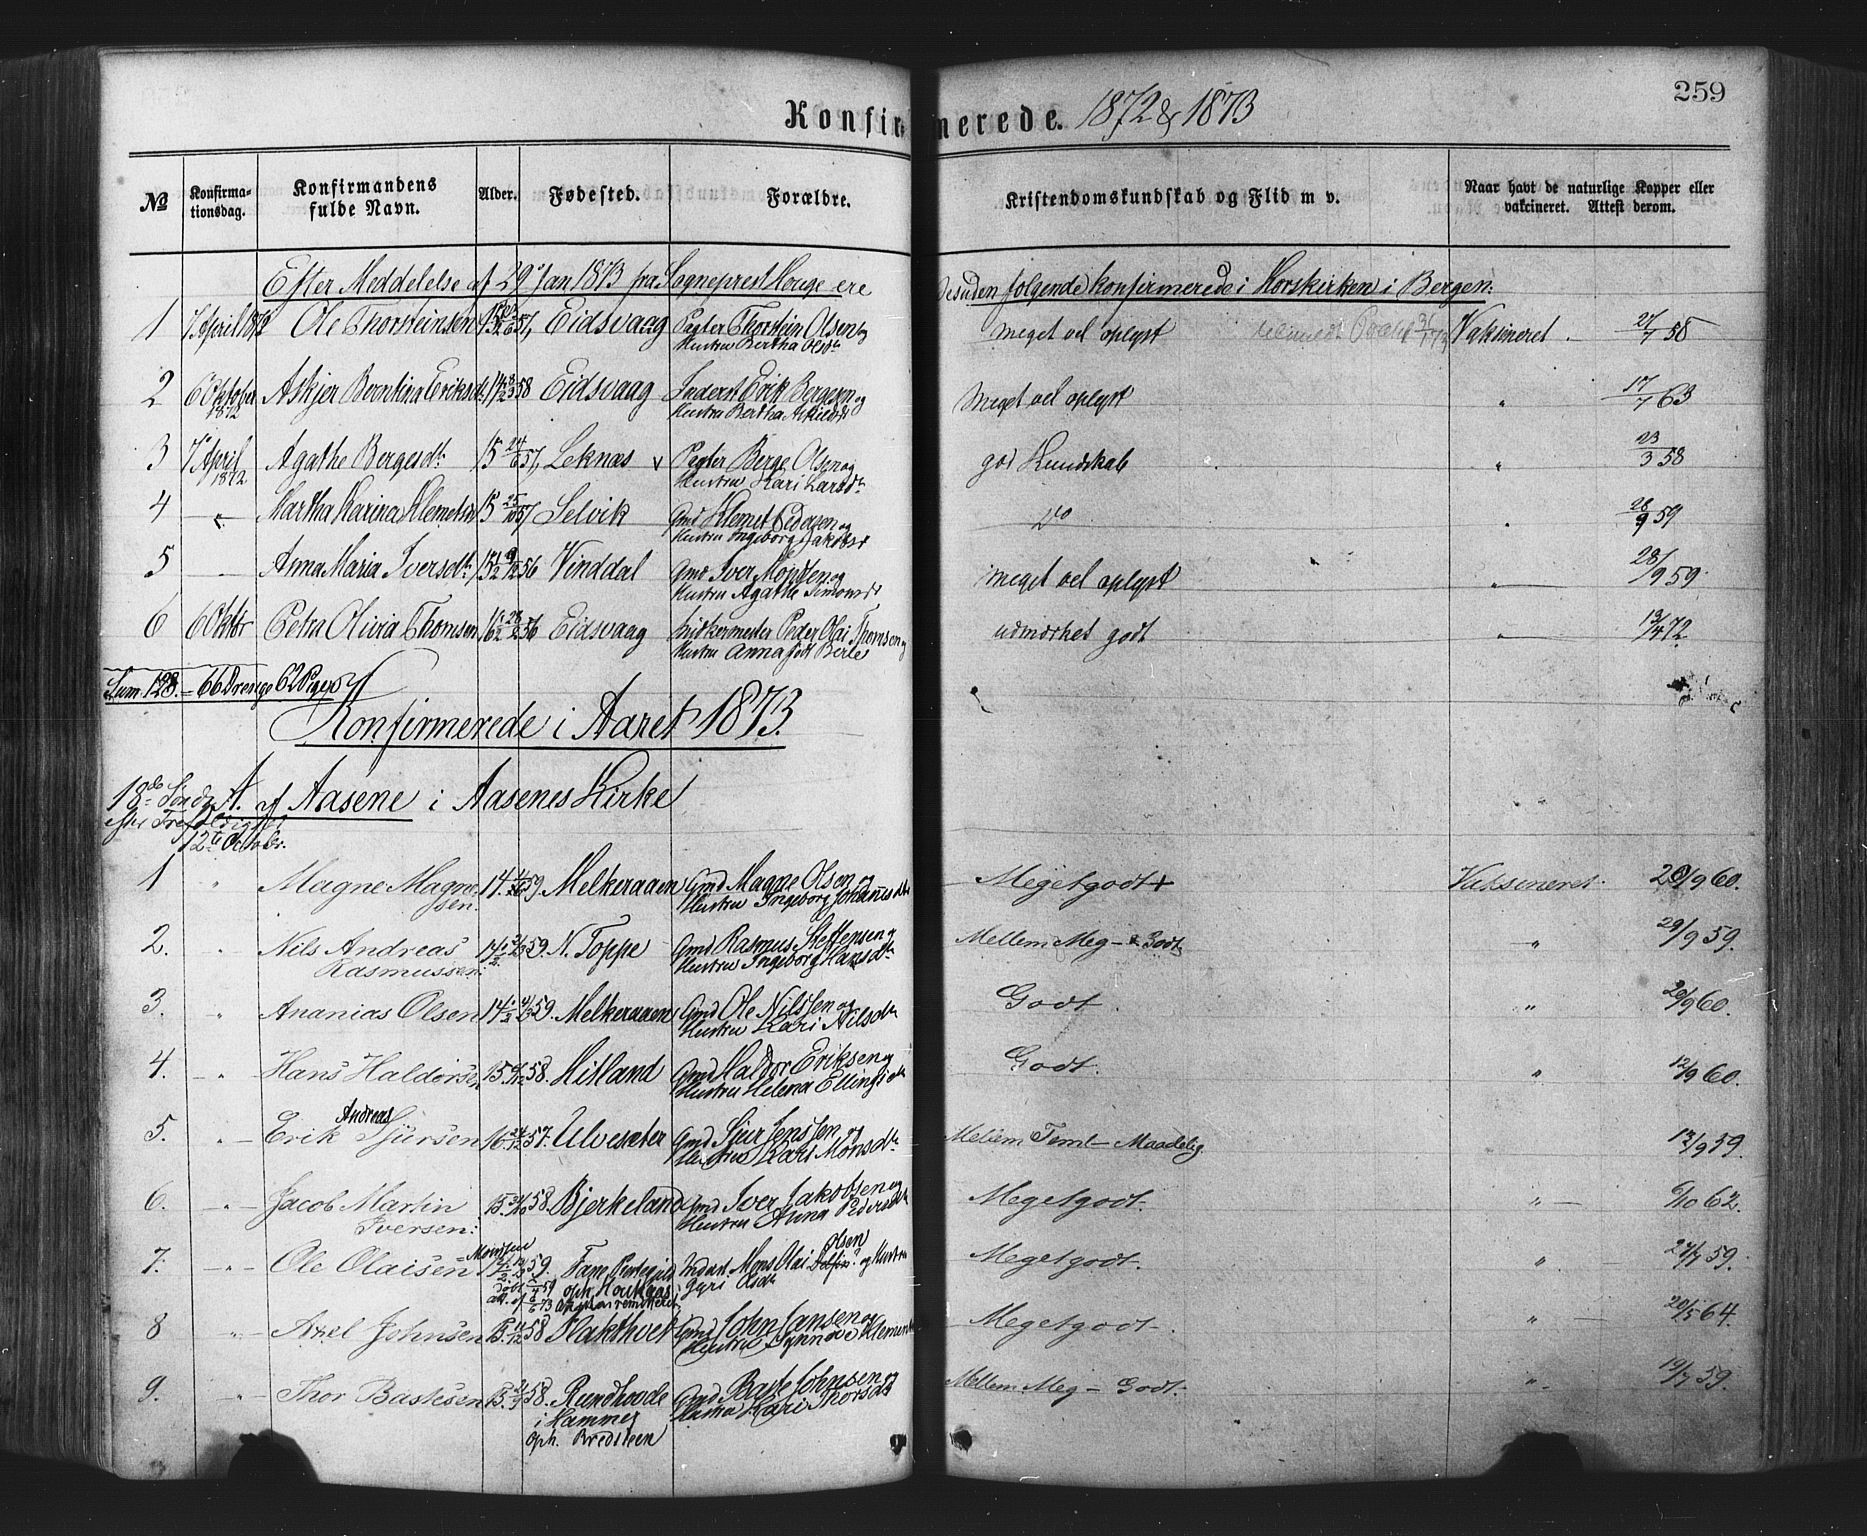 259
Konfirmerede. 1872 & 1873
№ Konfirmationsdag. Konfirmandens fulde Navn. Alder. Fødested. Forældre. Kristendomskundskab og Flid m v. Naar havt de naturlige Kopper eller vakcineret. Attest derom.
Efter Meddelelse af 29 Jan 1873 fra Sogneprest Houge ere desuden følgende konfirmerede i Korskirken i Bergen:
1 7 April 1872 Ole Thorsteinsen Eidsvaag Pagter Thorstein Olsen og meget vel oplyst Vaksineret 27/7 58
Hustru Bertha Olsdr
2 6 Oktober Askjer Berntina Eriksdr 14 58 Eidsvaag Inderst Erik Bergesen og Meget vel oplyst " 17/7 63
1872 Hustru Bertha
3 7 April Agathe Bergesdtr 15 24/6 57 Leknæs Pagter Berge Olsen og god Kundskab " 23/3 58
1872 Hustru Kari Larsdtr
4 " Martha Karina Klemetsdr 15 25/10 57 Selvik Gmd Klemet Pedersen og do " 28/9 59
Hustru Ingeborg Jakobsdr
5 — Anna Maria Iversdtr 15 56 Vinddal Gmd Iver Monsen og meget vel oplyst " 28/9 59
Hustru Agathe Simonsdr
6 6 Oktbr Petra Olivia Thomsen 16 56 Eidsvaag Peder Olai Thomsen og udmærket godt " 13/4 72
Hustru Anna født Berle
Sum 128. = 66 Drenge 62 Piger
Konfirmerede i Aaret 1873.
18de Sønd. A. af Aasene i Aasenes Kirke
12te October.
1 " Magne Magnessen. 14 59. Melkeraaen Gmd Magne Olsen og Megetgodt + Vaksineret. 20/9 60.
Hustru Ingeborg Johannesdtr
2. " Nils Andreas 14 1/2 59. N. Toppe Gmd Rasmus Steffensen og Mellem Meg – & Godt " 29/9 59.
Rasmussen: Hustru Ingeborg Hansdtr
3. " Ananias Olsen 14 1/2 59. Melkeraaen Gmd Ole Nilssen og Godt. " 20/9 60.
Hustru Kari Nilsdtr
4. " Hans Haldorsen 15. 58. Hisland Gmd Haldor Eriksen og Godt. " 12/9 60.
Hustru Helena Ellingsdtr
Andreas
5. " Erik Sjursen 16 57. Ulvesæter Gmd Sjur Jenssen og Mellem Teml – Maadelig. 12/9 59.
Hustru Kari Monsdtr
6. " Jacob Martin 15. 58. Bjerkeland Gmd Iver Jakobsen og Megetgodt. " 62.
Iversen: Hustru Anna Pedersdtr
= Monssen olsen
7. " Ole Olaisen 59. Fane Prestegjeld Indert Mons Olai og Hustru Megetgodt. " 24/7 59.
Gyri Olsdtr
8 " Axel Johnsen 58 Flaktvet Gmd John Jansen og Megetgodt. " 20/5 64.
Hustru Synnøve Klemetsdr
9. " Thor Bastesen 15. 58. Rundhovde Gmd Baste Johnsen og Mellem Meg – Godt. " 19/7 59.
i Hammer Hustru Kari Thorsdtr
oph. Bredsteen